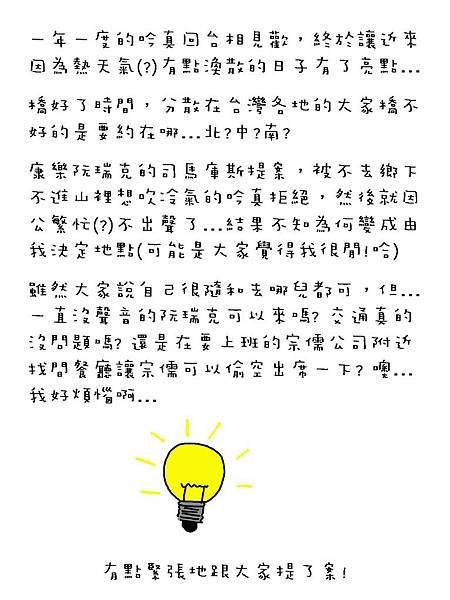 一年一度的吟真回台相見歡，終於讓近來
因為熱天氣(?)有點渙散的日子有了亮點...
橋好了時間，分散在台灣各地的大家橋不
好的是要約在哪...北?中?南?
康樂阮瑞克的司馬庫斯提案，被不去鄉下
不進山裡想吹冷氣的吟真拒絕，然後就因
公繁忙(?)不出聲了...結果不知為何變成由
我決定地點(可能是大家覺得我很閒!哈)
雖然大家說自己很隨和去哪兒都可，但...
一直沒聲音的阮瑞克可以來嗎? 交通真的
沒問題嗎? 還是在要上班的宗儒公司附近
找間餐廳讓宗儒可以偷空出席一下? 噢...
我好煩惱啊...
有點緊張地跟大家提了案!